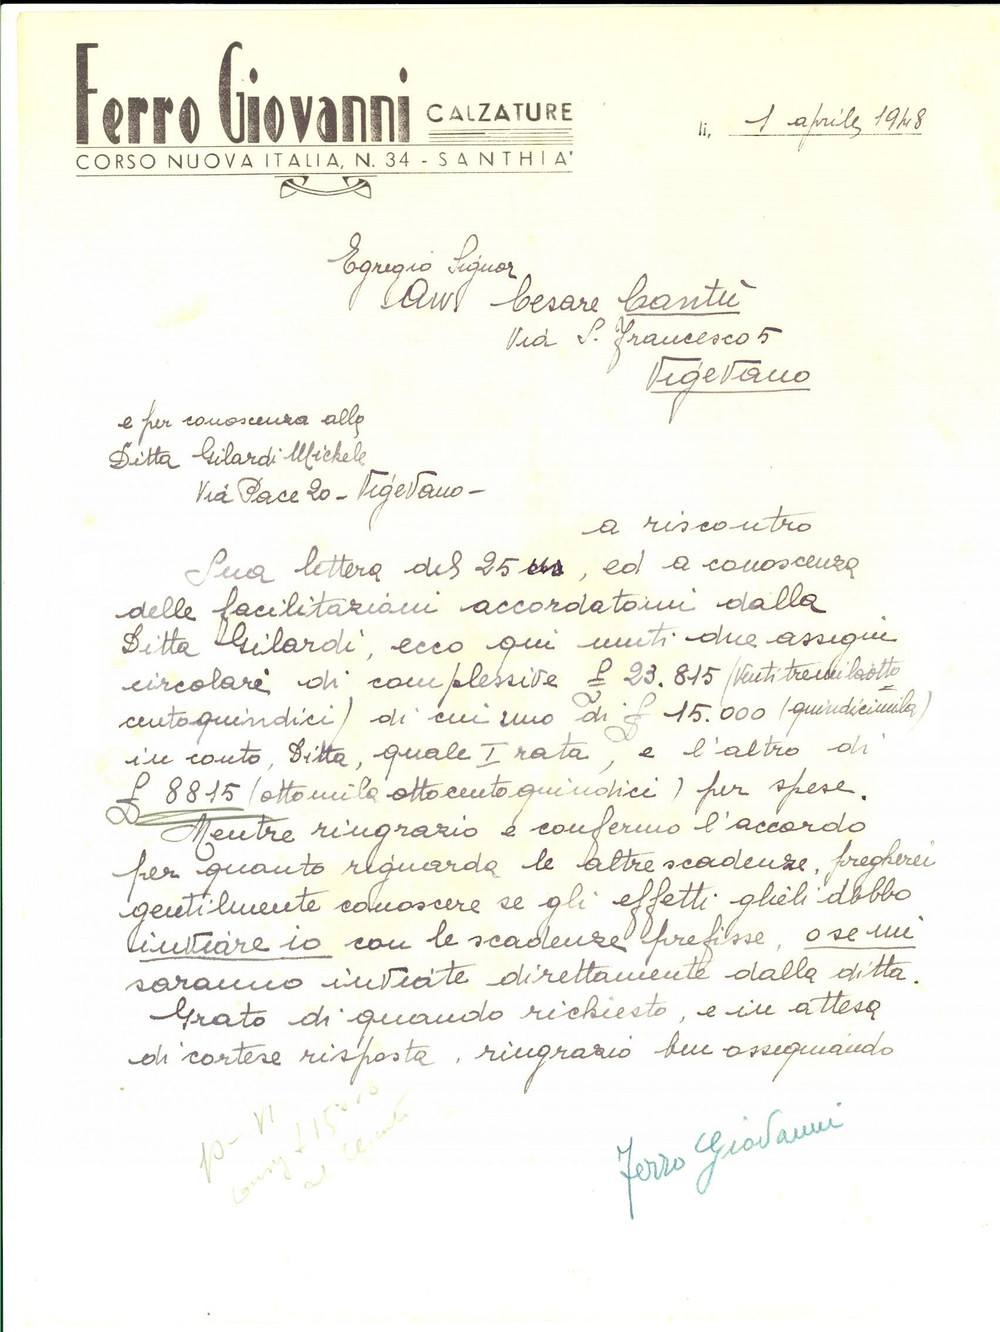 Ferro Giovanni CALZATURE
CORSO NUOVA ITALIA, N. 34 - SANTHIA'
li, 1 aprile 1948
Egregio Signor
Avv. Cesare Cantù
Via S. Francesco 5
Vigevano
e per conoscenza alla
Ditta Gilardi Michele
Via Pace 20 - Vigevano -
a riscontro
Sua lettera del 25 , ed a conoscenza
delle facilitazioni accordatomi dalla
Ditta Gilardi, ecco qui uniti due assegni
circolari di complessive £ 23.815 (ventitremilaotto
centoquindici) di cui uno di £ 15.000 (quindicimila)
in conto, Ditta, quale I rata, e l'altro di
£ 8815 (ottomila ottocentoquindici) per spese.
Mentre ringrazio e confermo l'accordo
per quanto riguarda le altre scadenze, pregherei
gentilmente conoscere se gli effetti glieli debbo
inviare io con le scadenze prefisse, o se mi
saranno inviate direttamente dalla ditta.
Grato di quando richiesto, e in attesa
di cortese risposta, ringrazio ben ossequiando
Ferro Giovanni
£ 15000